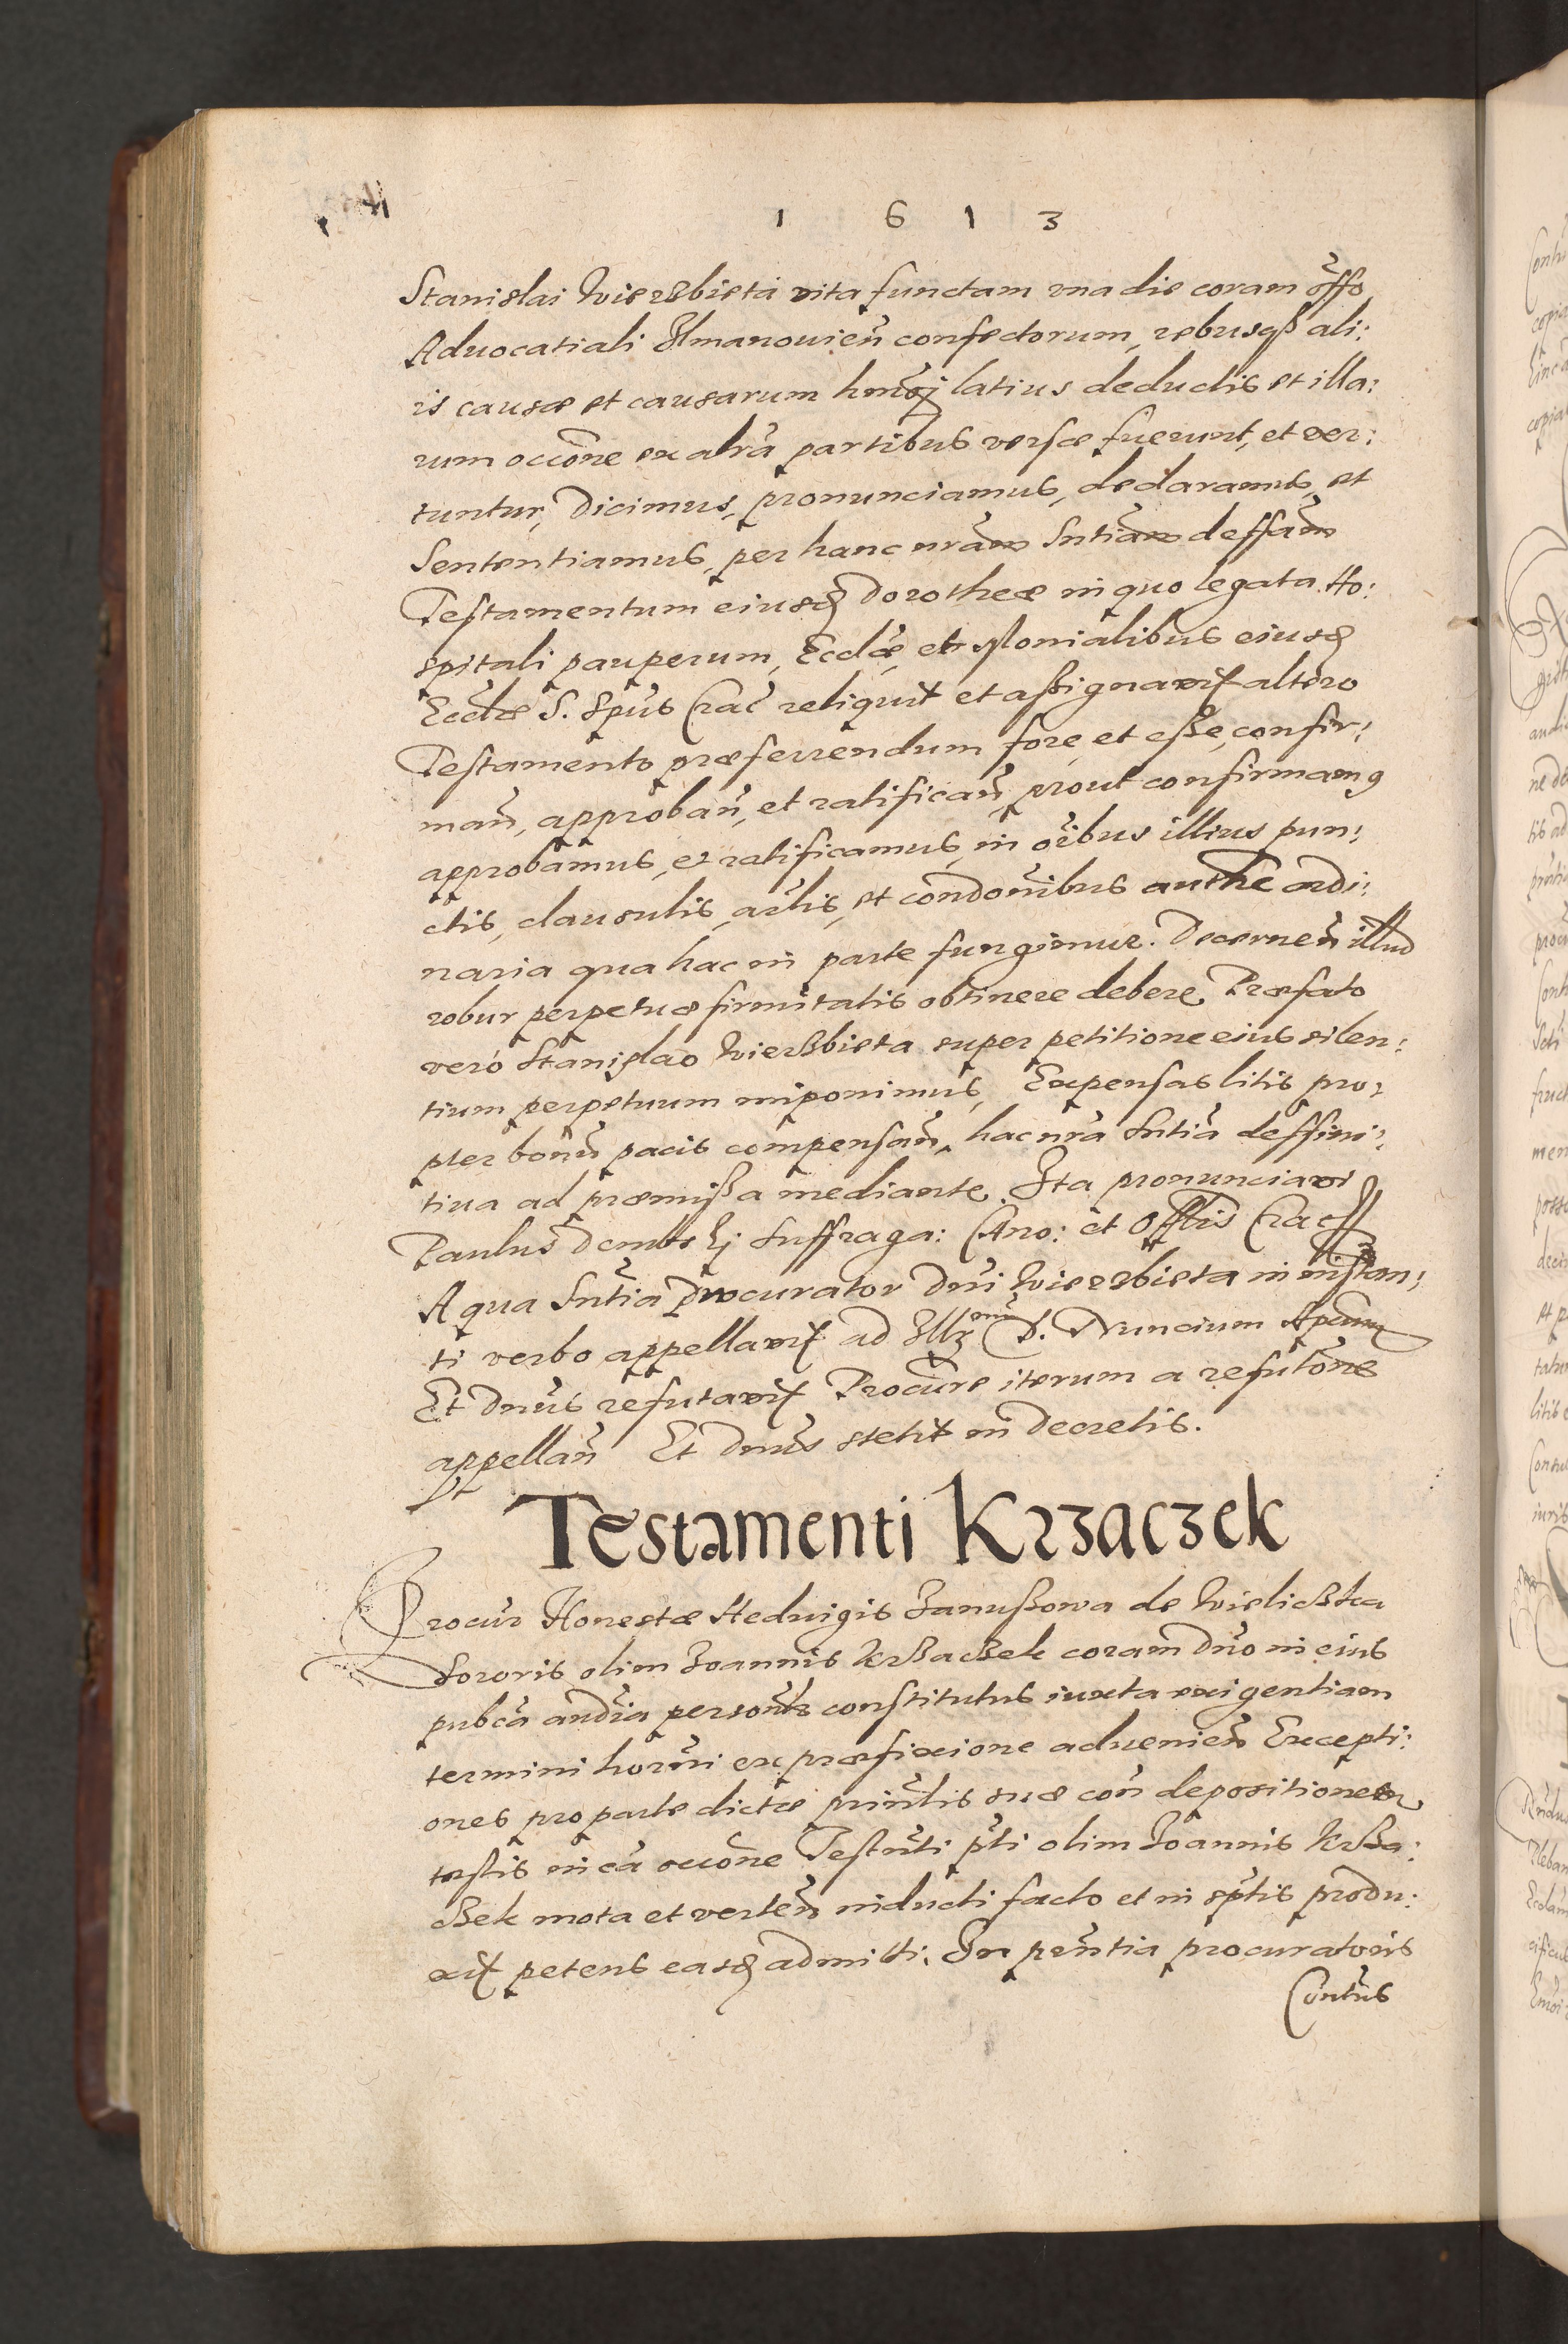 1 6 1 3
Stanislai Wierzbieta vita functam una die coram offo
Advocatiali Ilmanovien̄ confectorum, rebusq3 ali:
is causæ et causarum hm̄oj latius deductis et illa:
rum occōne ex alrā partibus versæ fuerunt, et ver:
tuntur, dicimus, pronunciamus, declaramus, et
Sententiamus, per hanc nr̄am Sntiam deffām
Testamentum eiusd Dorotheæ in quo legata Ho:
spitali pauperum, Eccliæ, et Monialibus eiusd
Eccliæ S. Spūs Crac̄ reliquit et assignavit altero
Testamento præferrendum fore, et esse, confir:
man̄, approban̄, et ratifican̄, prout confirmamq
approbamus, et ratificamus, in oībus illius pun:
ctis, clausulis, artlis, et condōnibus authe ordi:
naria qua hac in parte fungimur. Decernen̄ illud
robur perpetuæ firmitatis obtinere debere. Præfato
verò Stanislao Wierßbieta super petitione eius silen:
tium perpetuum imponimus, Expensas litis pro:
pter bonū pacis compensan̄, hac nr̄a Sntia deffini:
tiva ad præmissa mediante. Ita pronunciavi
Paulus Dembski Suffraga: Cano: et Offlis Crac
A qua Sntia Procurator Dni Wierzbieta in instan:
ti verbo appellavit ad Illr̄mū D. Nuncium Aplicum
Et Dnūs refutavit Procure iterum a refutōne
appellan̄ Et Dnūs stetit in decretis.
Testamenti Krzaczek
Procur Honestæ Hedvigis Janußowa de Wielicßka
Sororis olim Joannis Krßacßek coram Dnō in eius
pub̄ca aud̄ia personlr constitutus iuxta exigentiam
termini hodrni ex præfixione advenien̄ Excepti:
ones pro parte dictæ prinlis suæ con̄ depositionem
testis in cā occōne Testnti pti olim Joannis Krßa:
cßek mota et verten̄ inducti facto et in sptis produ:
xit petens easd admitti. In pntia procuratoris
Contus